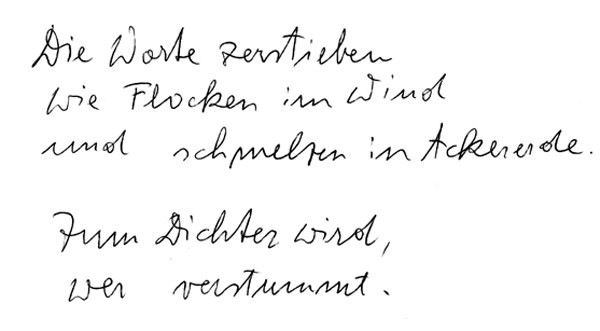 Die Worte zerstieben
wie Flocken im Wind
und schmelzen in Ackererde.
Zum Dichter wird,
wer verstummt.